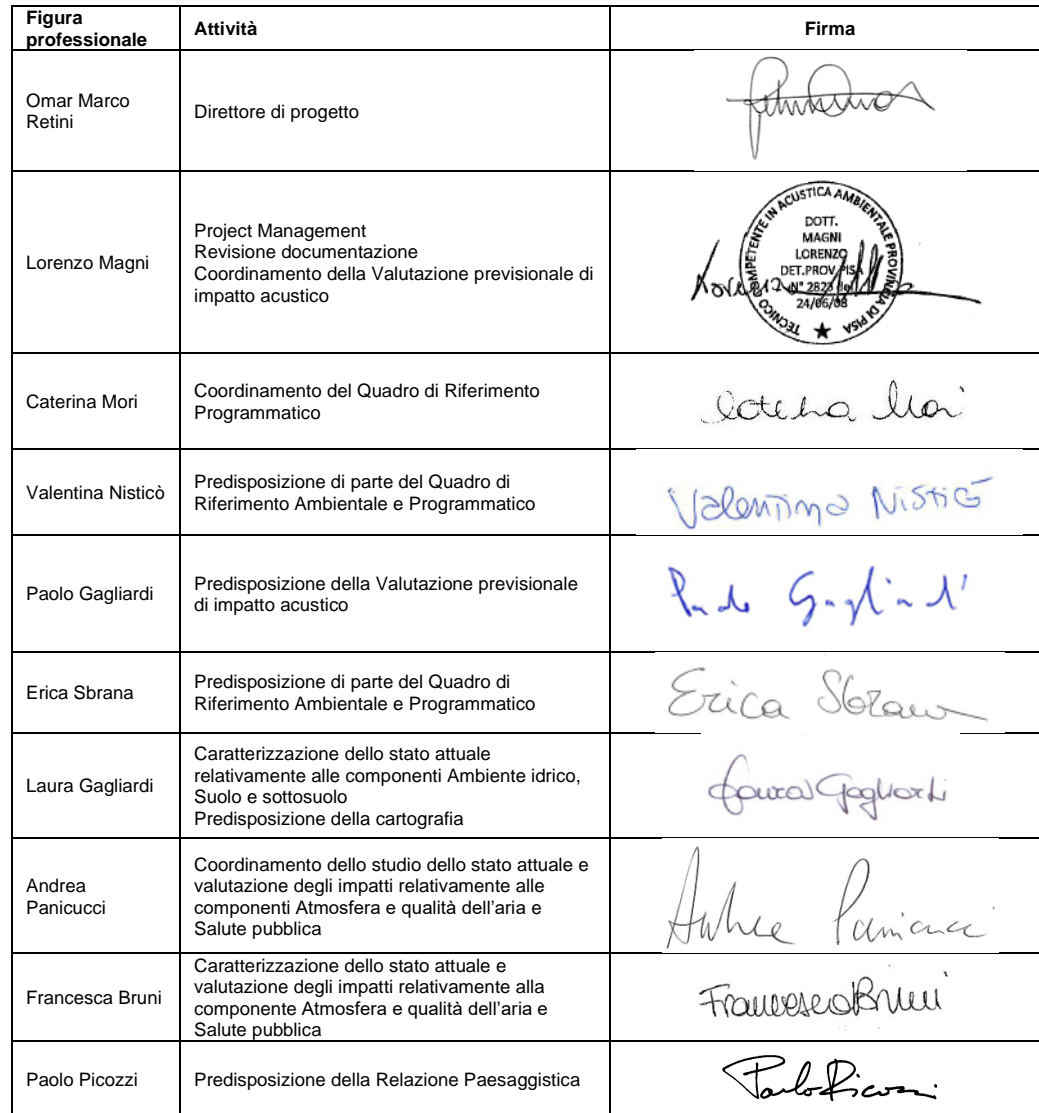 Figura professionale Attività Firma
Omar Marco Retini
Direttore di progetto
Lorenzo Magni
Project Management
Revisione documentazione
Coordinamento della Valutazione previsionale di
impatto acustico
TECNICO COMPETENTE IN ACUSTICA AMBIENTALE PROVINCIA DI PISA
DOTT.
MAGNI
LORENZO
DET.PROV.PISA
N° 2823 del
24/06/08
Lorenzo
Caterina Mori
Coordinamento del Quadro di Riferimento
Programmatico
Caterina Mori
Valentina Nisticò
Predisposizione di parte del Quadro di
Riferimento Ambientale e Programmatico
Valentina Nisticò
Paolo Gagliardi
Predisposizione della Valutazione previsionale
di impatto acustico
Paolo Gagliardi
Erica Sbrana
Predisposizione di parte del Quadro di
Riferimento Ambientale e Programmatico
Erica Sbrana
Laura Gagliardi
Caratterizzazione dello stato attuale
relativamente alle componenti Ambiente idrico,
Suolo e sottosuolo
Predisposizione della cartografia
Laura Gagliardi
Andrea
Panicucci
Coordinamento dello studio dello stato attuale e
valutazione degli impatti relativamente alle
componenti Atmosfera e qualità dell'aria e
Salute pubblica
Andrea Panicucci
Francesca Bruni
Caratterizzazione dello stato attuale e
valutazione degli impatti relativamente alla
componente Atmosfera e qualità dell'aria e
Salute pubblica
Francesca Bruni
Paolo Picozzi
Predisposizione della Relazione Paesaggistica
Paolo Picozzi